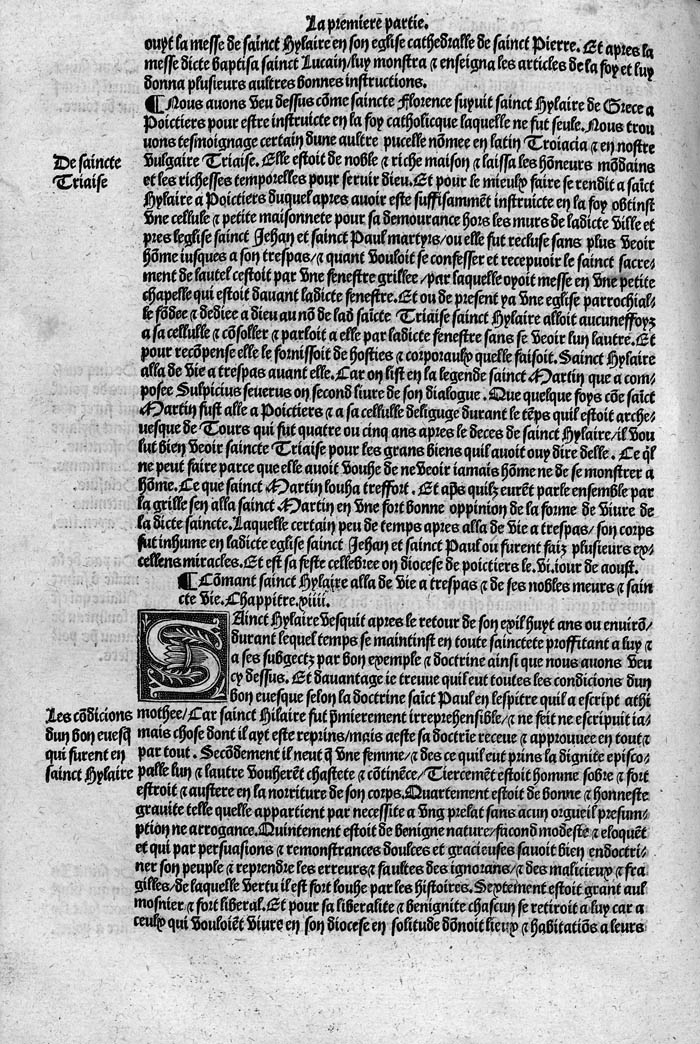 La premiere partie.
ouyt la messe de sainct Hylaire en son eglise cathedralle de sainct Pierre. Et apres la
messe dicte baptisa sainct Lucain/luy monstra ⁊ enseigna les articles de la foy et luy
donna plusieurs aultres bonnes instructions.
¶Nous auons veu dessus cõme saincte Florence suyuit sainct Hylaire de Grece a
Poictiers pour estre instruicte en la foy catholicque laquelle ne fut seule. Nous trou
uons tesmoignage certain dune aultre pucelle nõmee en latin Troiacia ⁊ en nostre
De saincte
Triaise
vulgaire Triaise. Elle estoit de noble ⁊ riche maison ⁊ laissa les hõneurs mõdains
et les richesses temporelles pour seruir dieu. Et pour le mieulx faire se rendit a saĩct
Hylaire a Poictiers duquel apres auoir este suffisammẽt instruicte en la foy obtinst
vne cellule ⁊ petite maisonnete pour sa demourance hors les murs de ladicte ville et
pres leglise sainct Jehan et sainct Paul martyrs/ou elle fut recluse sans plus veoir
hõme iusques a son trespas/⁊ quant vouloit se confesser et recepuoir le sainct sacre-
ment de lautel cestoit par vne fenestre grillee/par laquelle oyoit messe en vne petite
chapelle qui estoit dauant ladicte fenestre. Et ou de present ya vne eglise parrochial-
le fõdee ⁊ dediee a dieu au nõ de lad̃ saĩcte Triaise sainct Hylaire alloit aucuneffoyz
a sa cellulle ⁊ cõsoller ⁊ parloit a elle par ladicte fenestre sans se veoir lun lautre. Et
pour recõpense elle le fornissoit de hosties ⁊ corporaulx quelle faisoit. Sainct Hylaire
alla de vie a trespas auant elle. Car on list en la legende sainct Martin que a com-
posee Sulpicius seuerus on second liure de son dialogue. Que quelque foys cõe saĩct
Martin fust alle a Poictiers ⁊ a sa cellulle deliguge durant le tẽps quil estoit arche-
uesque de Tours qui fut quatre ou cinq ans apres le deces de sainct Hylaire/il vou
lut bien veoir saincte Triaise pour les grans biens quil auoit ouy dire delle. Ce q̃l
ne peut faire parce que elle auoit vouhe de ne veoir iamais hõme ne de se monstrer a
hõme. Ce que sainct Martin louha treffort. Et ap̃s quilz eurẽt parle ensemble par
la grille sen alla sainct Martin en vne fort bonne oppinion de la forme de viure de
la dicte saincte. Laquelle certain peu de temps apres alla de vie a trespas/son corps
fut inhume en ladicte eglise sainct Jehan et sainct Paul ou furent faiz plusieurs ex-
cellens miracles. Et est sa feste cellebree on diocese de poictiers le .vi. iour de aoust.
¶Cõmant sainct Hylaire alla de vie a trespas ⁊ de ses nobles meurs ⁊ sain
cte vie. Chappitre. xiiii.
SAinct Hylaire vesquit apres le retour de son exil huyt ans ou enuirõ/
durant lequel temps se maintinst en toute sainctete proffitant a luy ⁊
a ses subgectz par bon exemple ⁊ doctrine ainsi que nous auons veu
cy dessus. Et dauantage ie treuue quil eut toutes les condicions dun
bon euesque selon la doctrine saĩct Paul en lespitre quil a escript a thi
Les cõdicions
dun bon euesq̃
qui furent en
sainct Hylaire
mothee/Car sainct Hilaire fut p̃mierement irreprehensible/⁊ ne feit ne escripuit ia-
mais chose dont il ayt este reprins/mais a este sa doctrĩe receue ⁊ approuuee en tout ⁊
par tout. Secõdement il neut q̃ vne femme/⁊ des ce quil eut prins la dignite episco-
palle lun ⁊ lautre vouherẽt chastete ⁊ cõtinẽce/Tiercemẽt estoit homme sobre ⁊ fort
estroit ⁊ austere en la norriture de son corps. Quartement estoit de bonne ⁊ honneste
grauite telle quelle appartient par necessite a vng prelat sans acun orgueil presum-
ption ne arrogance. Quintement estoit de benigne nature/facond modeste ⁊ eloquẽt
et qui par persuasions ⁊ remonstrances doulces et gracieuses sauoit bien endoctri-
ner son peuple ⁊ reprendre les erreurs ⁊ faultes des ignorans/⁊ des malicieux ⁊ fra
gilles/de laquelle vertu il est fort louhe par les histoires. Septement estoit grant aul
mosnier ⁊ fort liberal. Et pour sa liberalite ⁊ benignite chascun se retiroit a luy car a
ceulx qui vouloiẽt viure en son diocese en solitude dõnoit lieux ⁊ habitatiõs a leurs